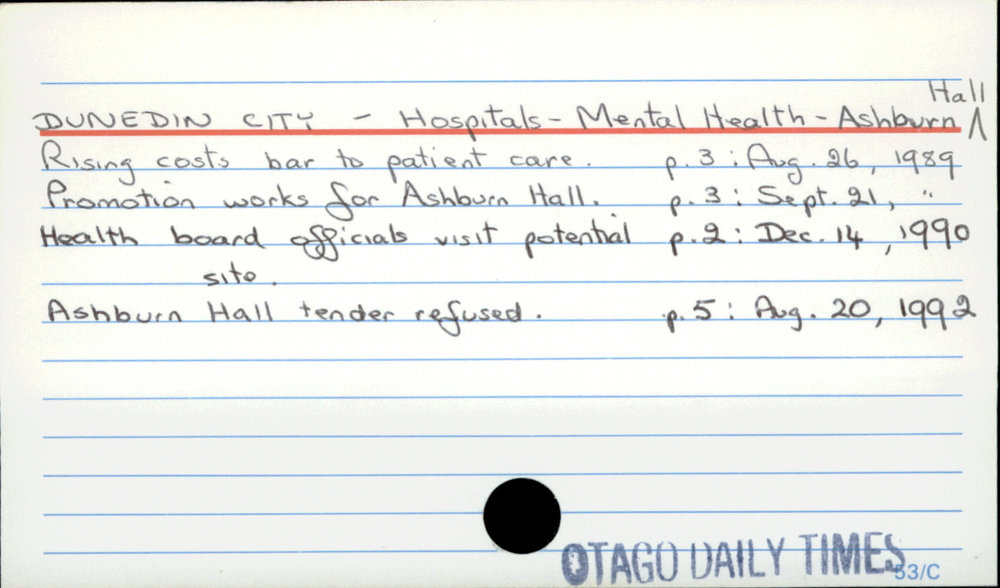 DUNEDIN CITY - Hospitals - Mental Health - Ashburn Hall
Rising costs bar to patient care. p. 3 : Aug. 26, 1989
Promotion works for Ashburn Hall. p. 3 : Sept. 21, "
Health board officials visit potential p. 2 : Dec. 14, 1990
site.
Ashburn Hall tender refused. p. 5 : Aug. 20, 1992
OTAGO DAILY TIMES
53/C